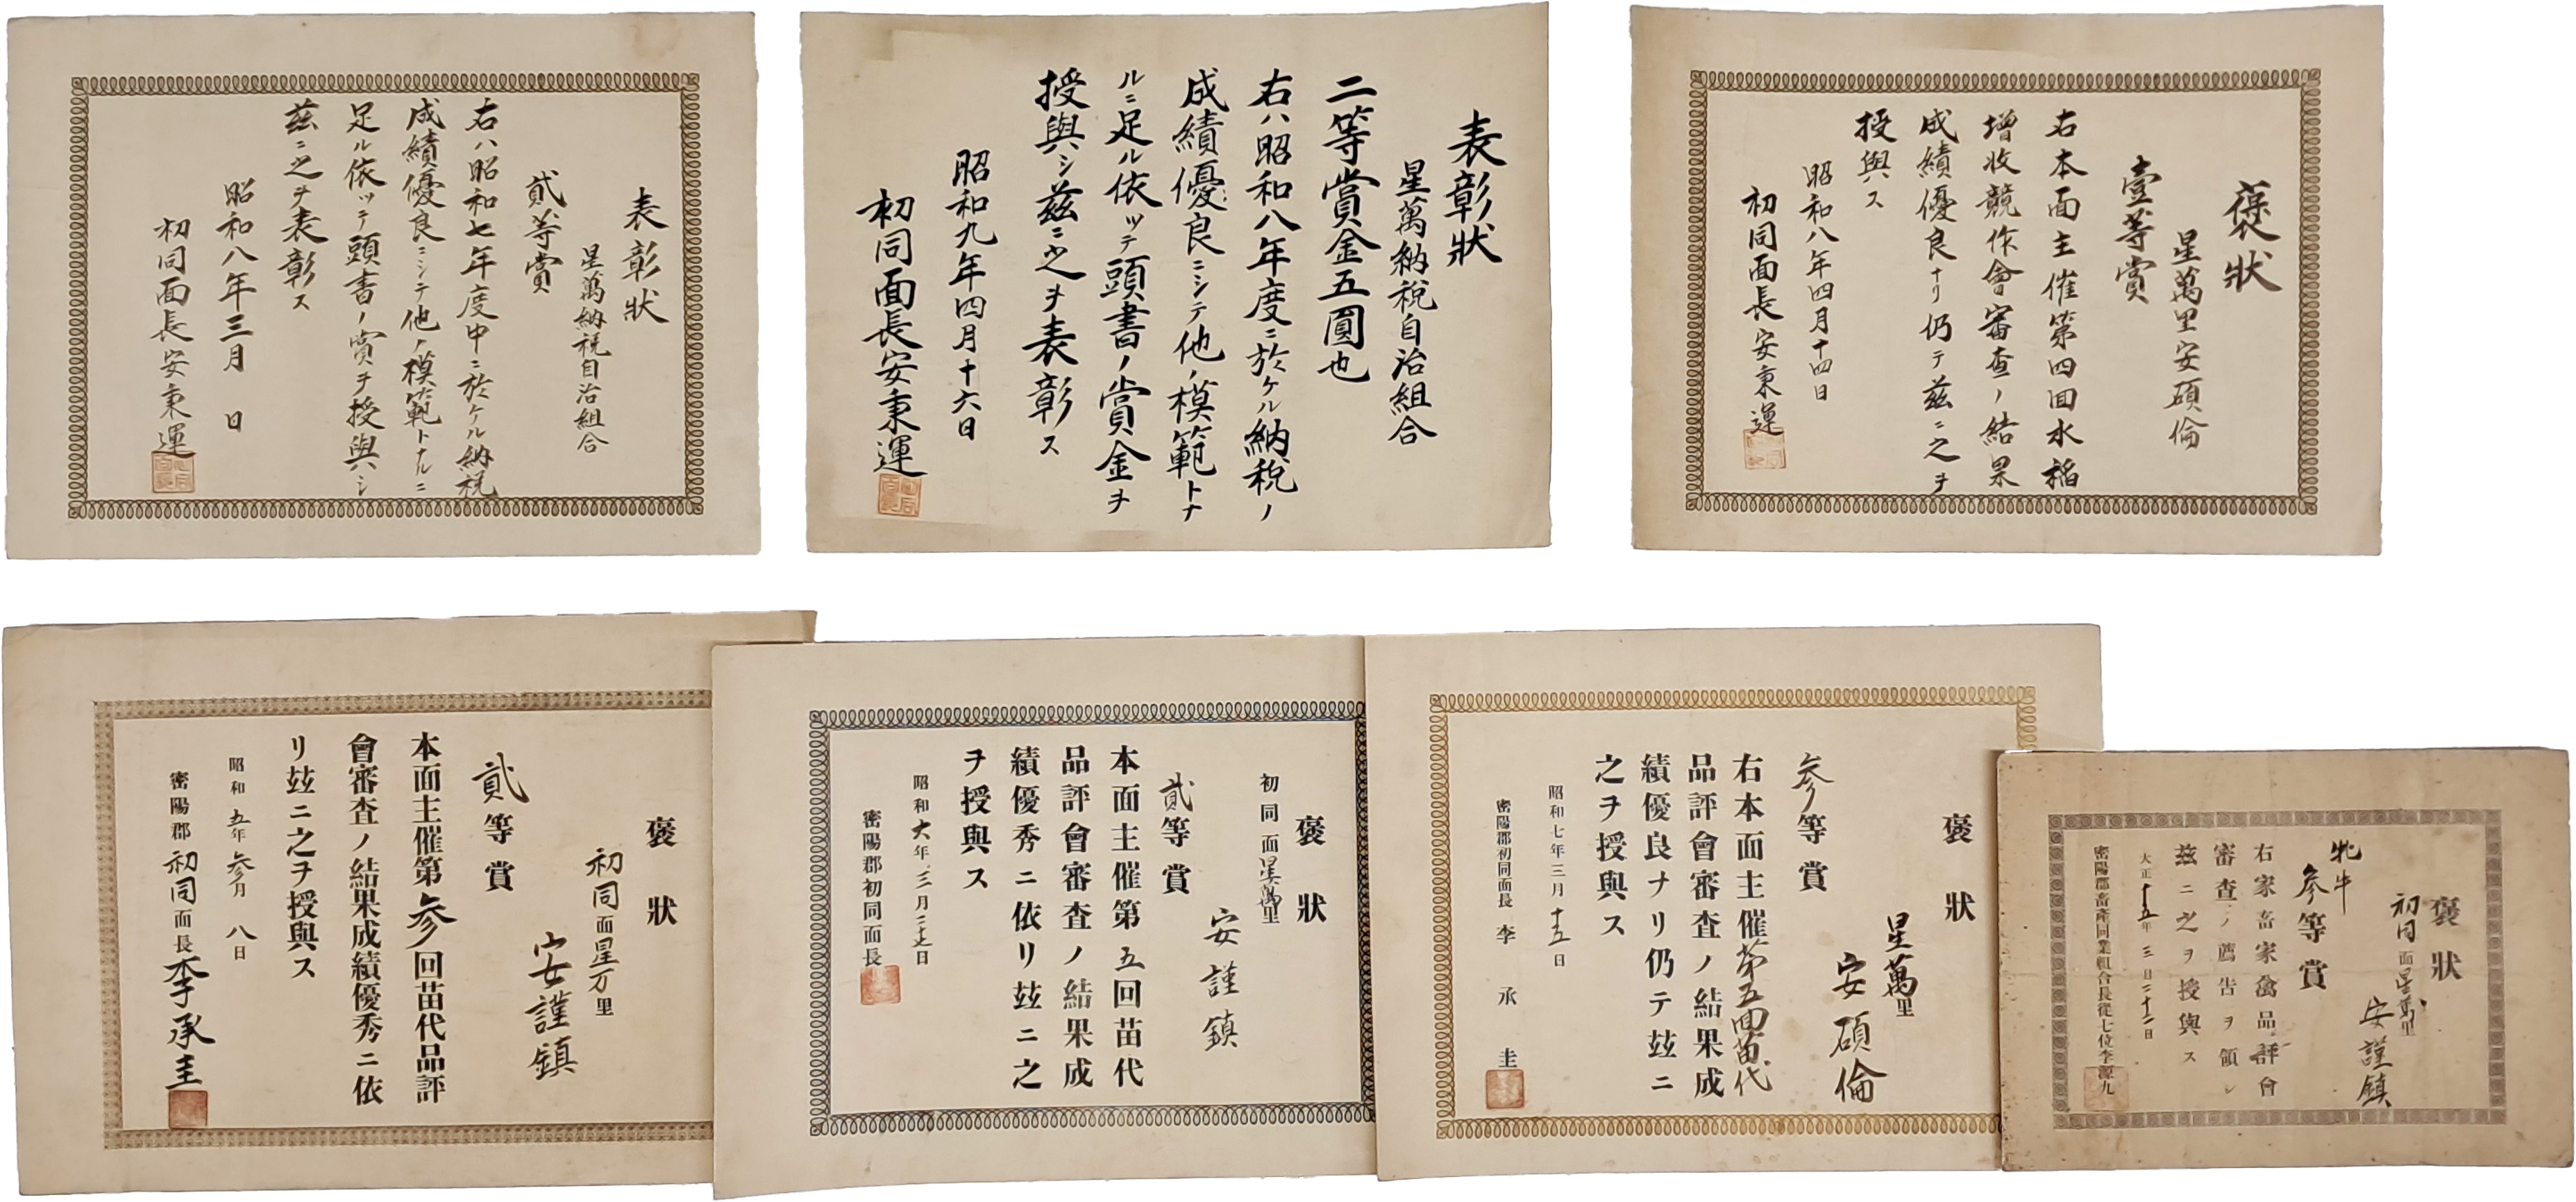 表彰狀
星萬納稅自治組合
貳等賞
右ハ昭和七年度中ニ於ケル納税
成績優良ニシテ他ノ模範トナルニ
足ル依ッテ頭書ノ賞ヲ授與シ
茲ニ之ヲ表彰ス
昭和八年三月 日
初同面長安秉運
表彰狀
星萬納税自治組合
二等賞金五圓也
右ハ昭和八年度ニ於ケル納税ノ
成績優良ニシテ他ノ模範トナ
ルニ足ル依ッテ頭書ノ賞金ヲ
授與シ茲ニ之ヲ表彰ス
昭和九年四月十六日
初同面長安秉運
褒狀
星萬里安碩倫
壹等賞
右本面主催第四回水稲
增收競作會審查ノ結果
成績優良ナリ仍テ茲ニ之ヲ
授與ス
昭和八年四月十四日
初同面長安秉運
褒狀
初同面星万里
安謹鎭
貳等賞
本面主催第参回苗代品評
會審査ノ結果成績優秀ニ依
リ玆ニ之ヲ授與ス
昭和五年参月八日
密陽郡初同面長李承圭
褒狀
初同面星萬里
安謹鎭
貳等賞
本面主催第五回苗代
品評會審査ノ結果成
績優秀ニ依リ玆ニ之
ヲ授與ス
昭和六年三月二十七日
密陽郡初同面長
褒狀
星萬里
安碩倫
参等賞
右本面主催第五回苗代
品評會審査ノ結果成
績優良ナリ仍テ玆ニ
之ヲ授與ス
昭和七年三月十五日
密陽郡初同面長 李承圭
褒狀
初同面星萬里
安謹鎭
牝牛
参等賞
右家畜家禽品評會
審査ノ薦告ヲ領シ
茲ニ之ヲ授與ス
大正十五年三月二十二日
密陽郡畜產同業組合長從七位李源九